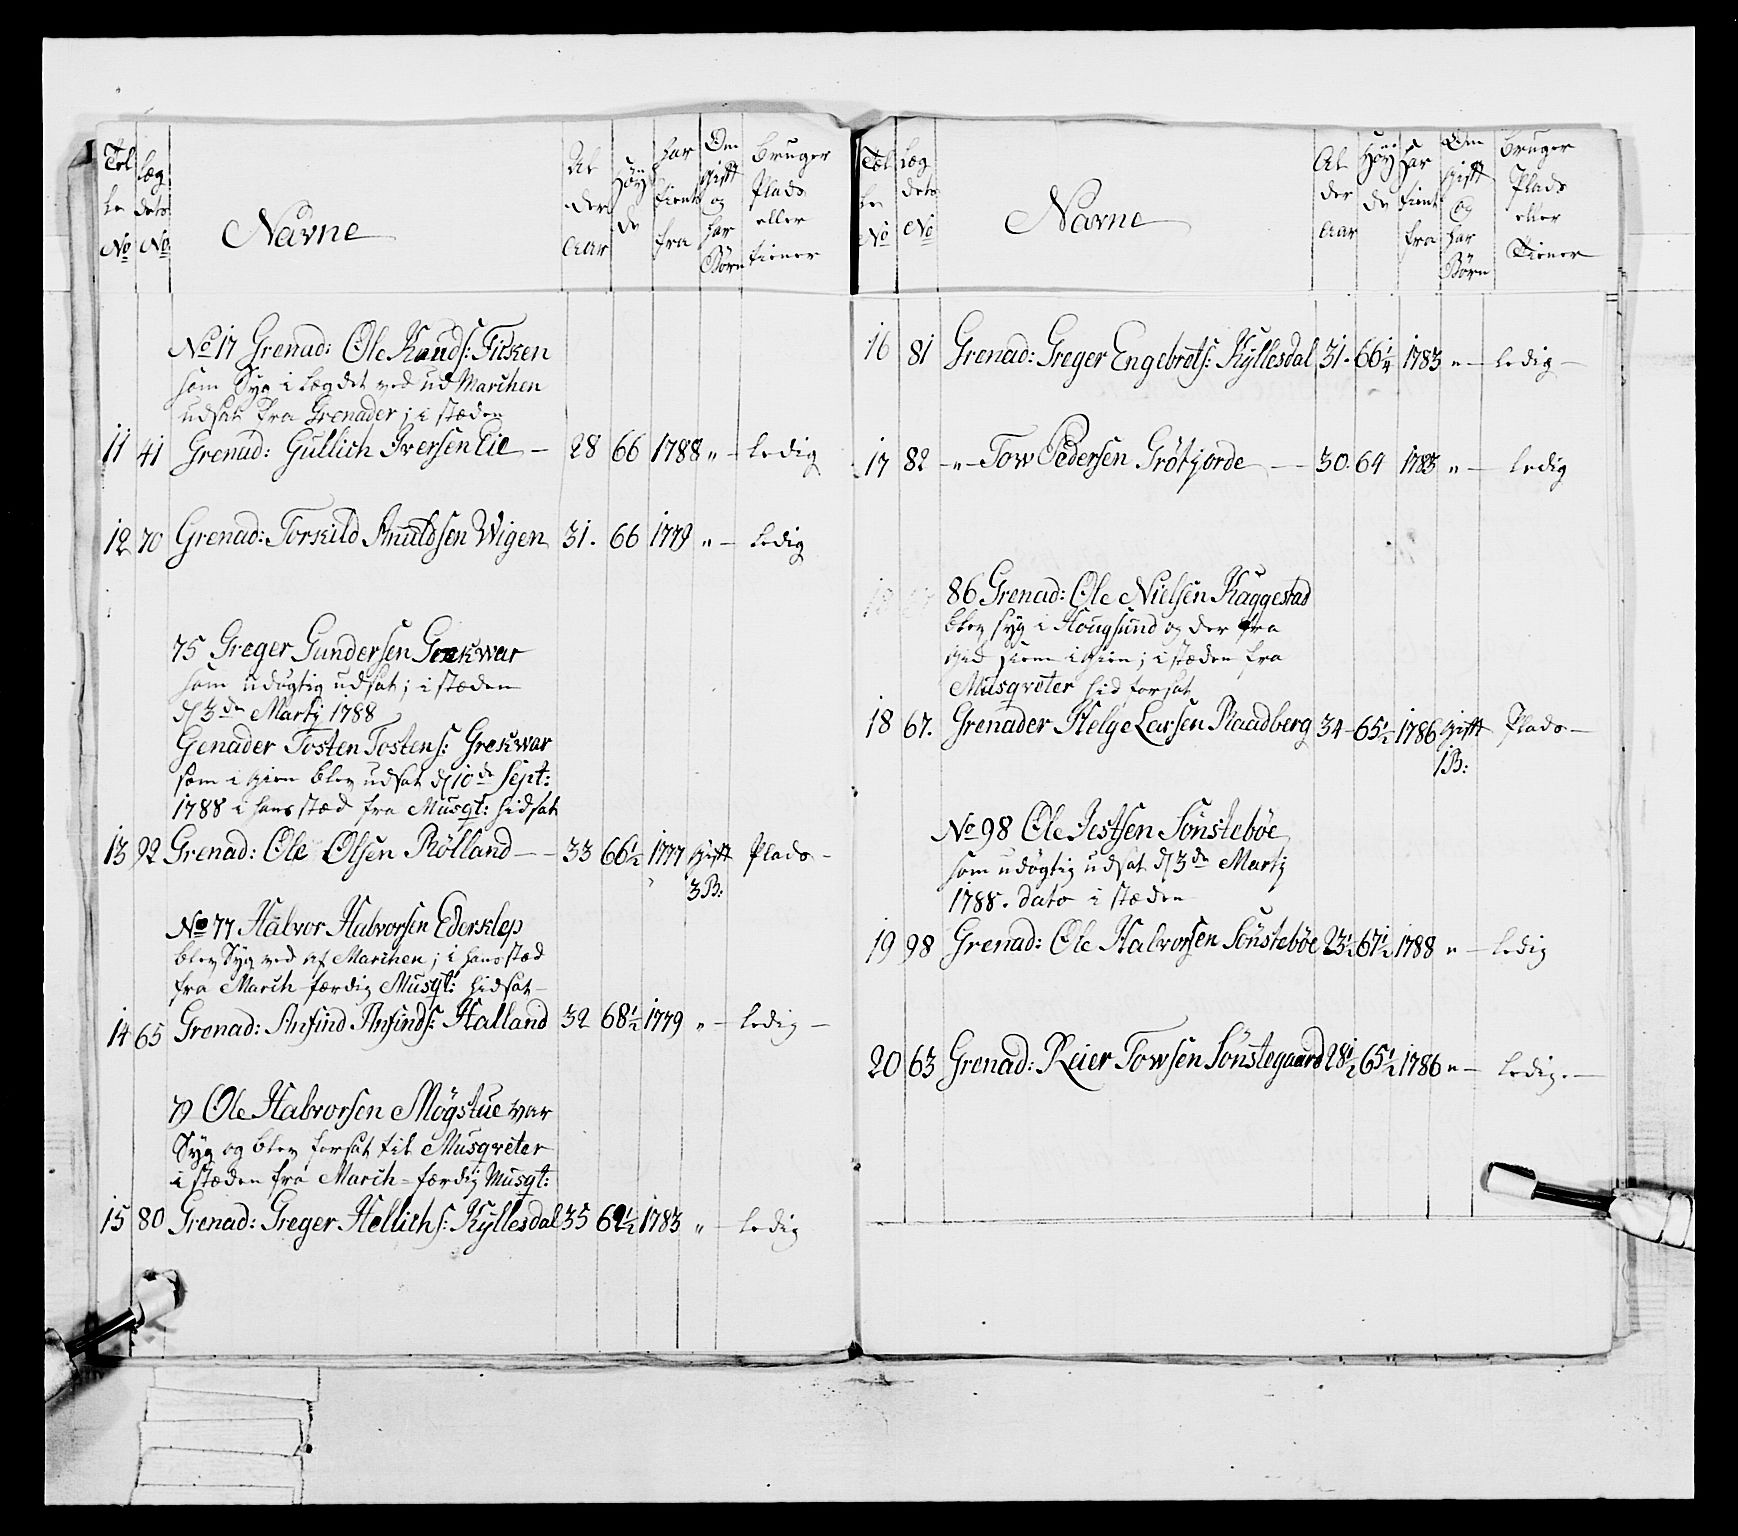 Tel
le
No
Læg
dets
No
Navne
Al
der
Aar
Høy
de
har
tient
fra
Om
Gift
og
har
Børn
bruger
Plads
eller
tiener
No 17 Grenad: Ole Knuds: Fisken
som Syg i Lægdet ved ud Marchen
udsat fra Grenader; i stæden
11 41 Grenad: Gullich Iversen Eie — 28 66 1788 " — ledig
12 70 Grenad: Torkild Knudsen Wigen 31. 66 1779 " — ledig
75 Greger Gundersen Grekwar
som udygtig udsat; i stæden
d 3de Martj 1788
Genader Tosten Tostens: Grekwar
som igien blev udsat d 10de Sept:
1788 i hans stæd fra Musqt: hidsat
13 92 Grenad: Ole Olsen Rølland — — 33 66½ 1777 Gift Plads —
3 B:
No 77 Halvor Halvorsen Ederklep
blev Syg ved af Marchen; i hans stæd
fra March-færdig Musqt: hidsat —
14 65 Grenad: Anfind Anfinds: Halland 32 68½ 1779 " — ledig —
79 Ole Halvorsen Møgstue var
Syg og blev forsat til Musqveter
i stæden fra March-færdig Musqt:
15 80 Grenad: Greger Hellichs: Kyllesdal 35 62½ 1783 " — ledig
Tel
le
No
Læg
dets
No
Navne
Al
der
Aar
Høy
de
har
tient
fra
Om
Gift
og
har
Børn
bruger
Plads
eller
Tiener
16 81 Grenad: Greger Engebrets: Kyllesdal 31. 66¼ 1783 " — ledig —
17 82 — " — Tow Pedersen Grøtjorde — — 30. 64 1783 " — ledig
86 Grenad: Ole Nielsen Kaggestad
blev syg i Hougsund og der fra
gik hiem igien; i stæden fra
Musqveter hid forsat
18 67. Grenader Helge Larsen Raadberg 34 — 65½ 1786 Gift Plads —
1 B:
No 98 Ole Jestsen Sønstebøe
som udygtig udsat d 3de Martj
1788. dato i stæden
19 98 Grenad: Ole Halvorsen Sønstebøe 23½ 67½ 1788 " — ledig
20 63 Grenad: Reier Towsen Sønstegaard 28½ 65½ 1786 " — ledig. —